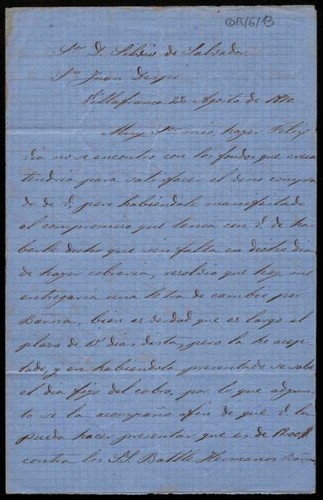 COR/6/13
Sor. D. Silvio de Salvador.
Sn. Juan Despí
Villafranca 23 Agosto de 1870
Muy Sor. mio, hayer Felix
dia no se encontro con los fondos que creia
tendria para satisfacer el vino compra
do de V. pero habiendole manifestado
el compromiso que tenia con V. de ha
berle dicho que sin falta en dicho dia
de hayer cobraria, resolvio que hoy me
entregaria una letra de cambio per
Barna, bien es verdad que es largo el
plazo de dias vista, pero la he acep
tado, y en habiendola presentado se sabe
el dia fijo del cobro, por lo que adjun
to se la acompaño afin de que V. la
pueda hacer presentar que es de
contra los SS. Batlle Hermanos Barna